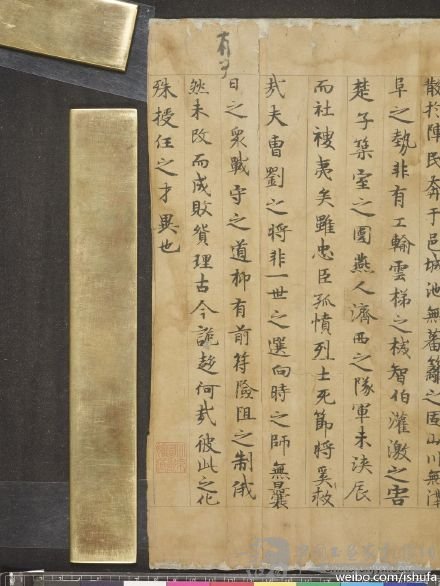 散於陣民奔于邑城池無蕃籬之固山川無溝
阜之勢非有工輸雲梯之械智伯灌激之害
楚子築室之圍燕人濟西之隊軍未浹辰
而社稷夷矣雖忠臣孤憤烈士死節將奚救
哉夫曹劉之將非一世之選向時之師無曩
日之衆戰守之道抑有前符險阻之制俄
然未改而成敗貿理古今詭趍何哉彼此之化
殊授任之才異也
weibo.com/ishufa